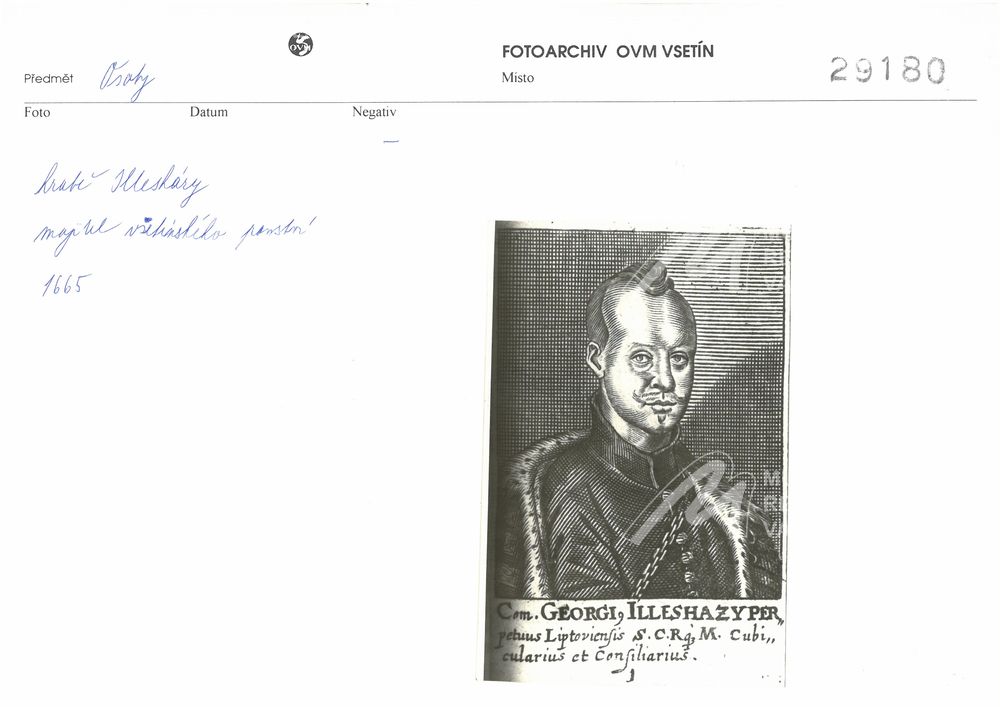 OVM
FOTOARCHIV OVM VSETÍN
29180
Předmět Osoby
Místo
Foto Datum Negativ
–
hrabě Illesháry
majitel vsetínského panství
1665
Com. GEORGI, ILLESHAZY PER„
petuus Liptoviensis S. C. Rq, M. Cubi„
cularius et Consiliarius.